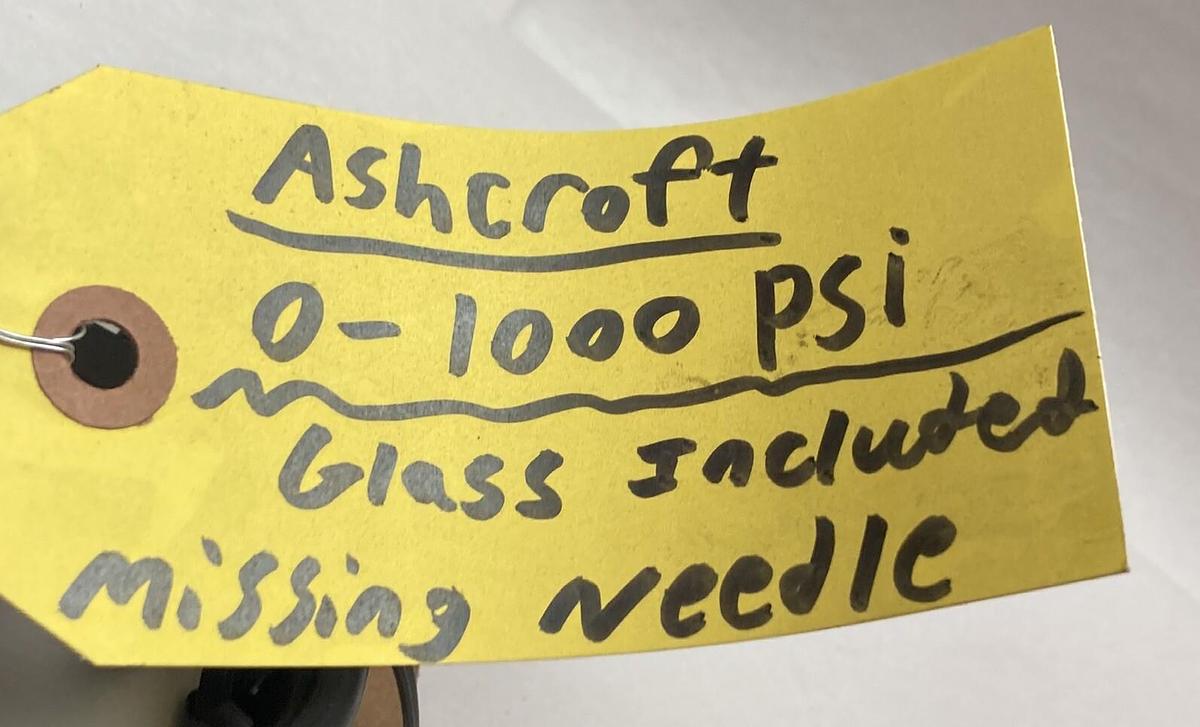 Ashcroft
0-1000 psi
Glass Included
Missing Needle